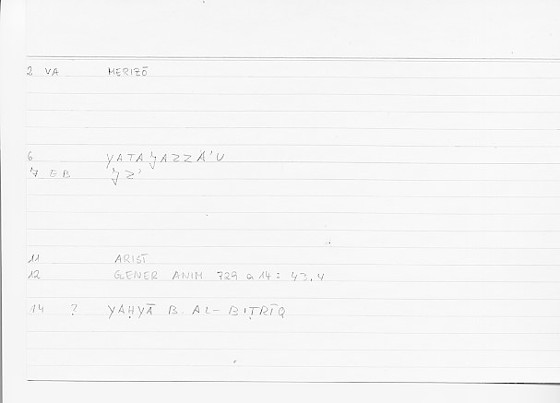 2 VA MERIZŌ
6 YATAǦAZZA'U
7 EB ǦZ'
11 ARIST
12 GENER ANIM 729 a 14 = 43.4
14 ? YAḤYĀ B. AL-BIṬRĪQ